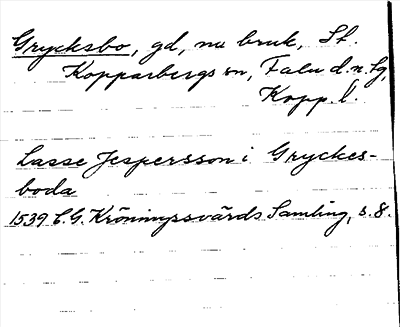 Grycksbo, gd, nu bruk, St.
Kopparbergs sn, Falu d.n. lg,
Kopp. l.
Lasse Jespersson i Gryckes-
boda
1539 C.G. Kröningssvärds Samling, s. 8.